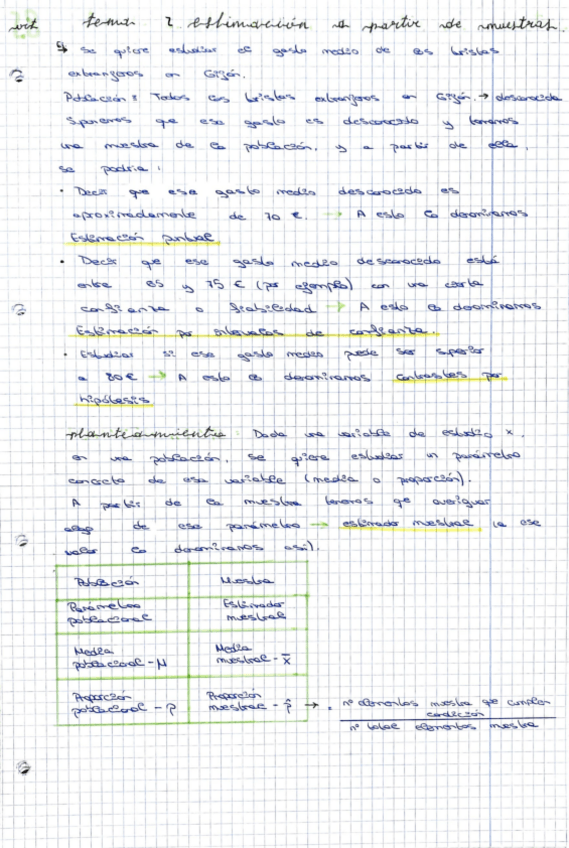 tema 2 estimación a partir de muestras.
Se quiere estudiar el gasto medio de los turistas
extranjeros en Gijón.
Población: Todos los turistas extranjeros en Gijón. → desconocida
Suponemos que ese gasto es desconocido y tenemos
una muestra de la población, y a partir de ella,
se podría:
• Decir que ese gasto medio desconocido es
aproximadamente de 70 €. → A esto lo denominamos
Estimación puntual
• Decir que ese gasto medio desconocido está
entre 65 y 75 € (por ejemplo) con una cierta
confianza o fiabilidad → A esto lo denominamos
Estimación por intervalos de confianza.
• Estudiar si ese gasto medio puede ser superior
a 80 € → A esto lo denominamos contrastes por
hipótesis
planteamiento: Dada una variable de estudio x,
en una población, se quiere estudiar un parámetro
concreto de esa variable (media o proporción).
A partir de la muestra tenemos que averiguar
algo de ese parámetro → estimador muestral (a ese
valor lo denominamos así).
Población Muestra
Parámetro poblacional Estimador muestral
Media poblacional - μ Media muestral - x̄
Proporción poblacional - p Proporción muestral - p̂ → nº elementos muestra que cumplen condición
nº total elementos muestra